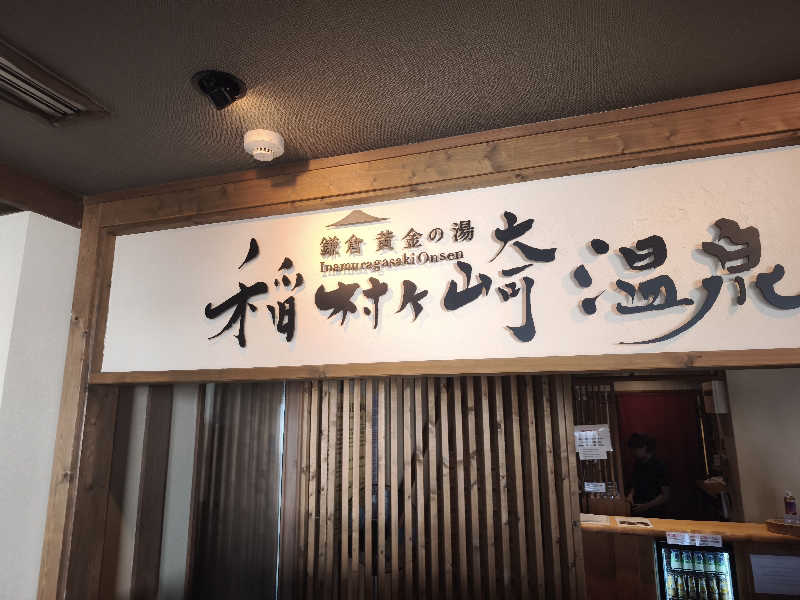 鎌倉 黄金の湯
InamuragasakiOnsen
稲村ヶ崎温泉